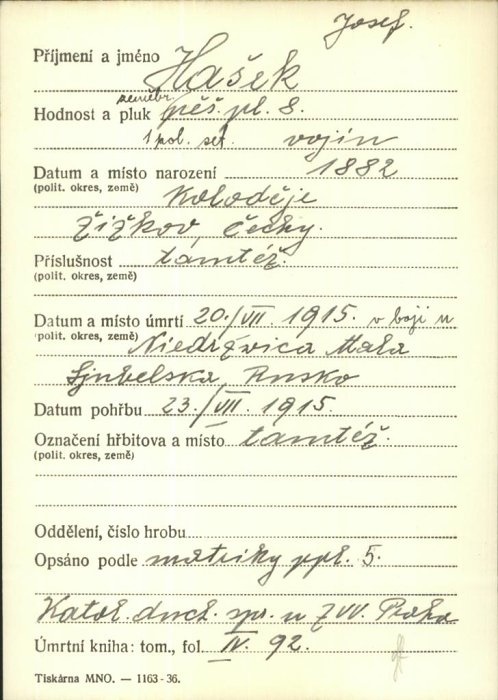 Josef.
Příjmení a jméno Hašek
zeměbr.
Hodnost a pluk pěš. pl. 8.
1 pol. set. vojín
Datum a místo narození 1882
(polit. okres, země) Koloděje
Žižkov, Čechy.
Příslušnost tamtéž.
(polit. okres, země)
Datum a místo úmrtí 20./VII. 1915. v boji u
(polit. okres, země) Niedrzwica Mala
Ljubelska, Rusko
Datum pohřbu 23./VII. 1915.
Označení hřbitova a místo tamtéž.
(polit. okres, země)
Oddělení, číslo hrobu
Opsáno podle matriky ppl. 5.
Katol. duch. spr. u ZVV. Praha
Úmrtní kniha: tom., fol. IV. 92.
Tiskárna MNO. — 1163-36.